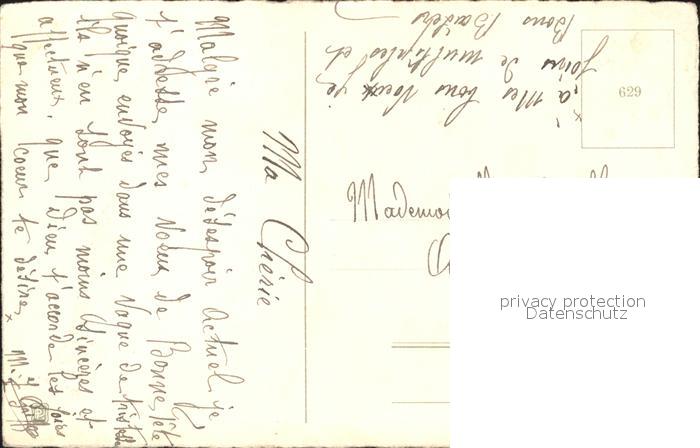 Ma Chérie
Malgré mon désespoir actuel je
t'adresse mes voeux de Bonne fête
quoique envoyés dans une vague de tristesse
ils n'en sont pas moins sincères et
affectueux, que Dieu t'accorde les joies
que mon coeur te désire,
x à mes bons voeux je
joins de multiples et
Bons Baisers
629
Mademoi
privacy protection
Datenschutz